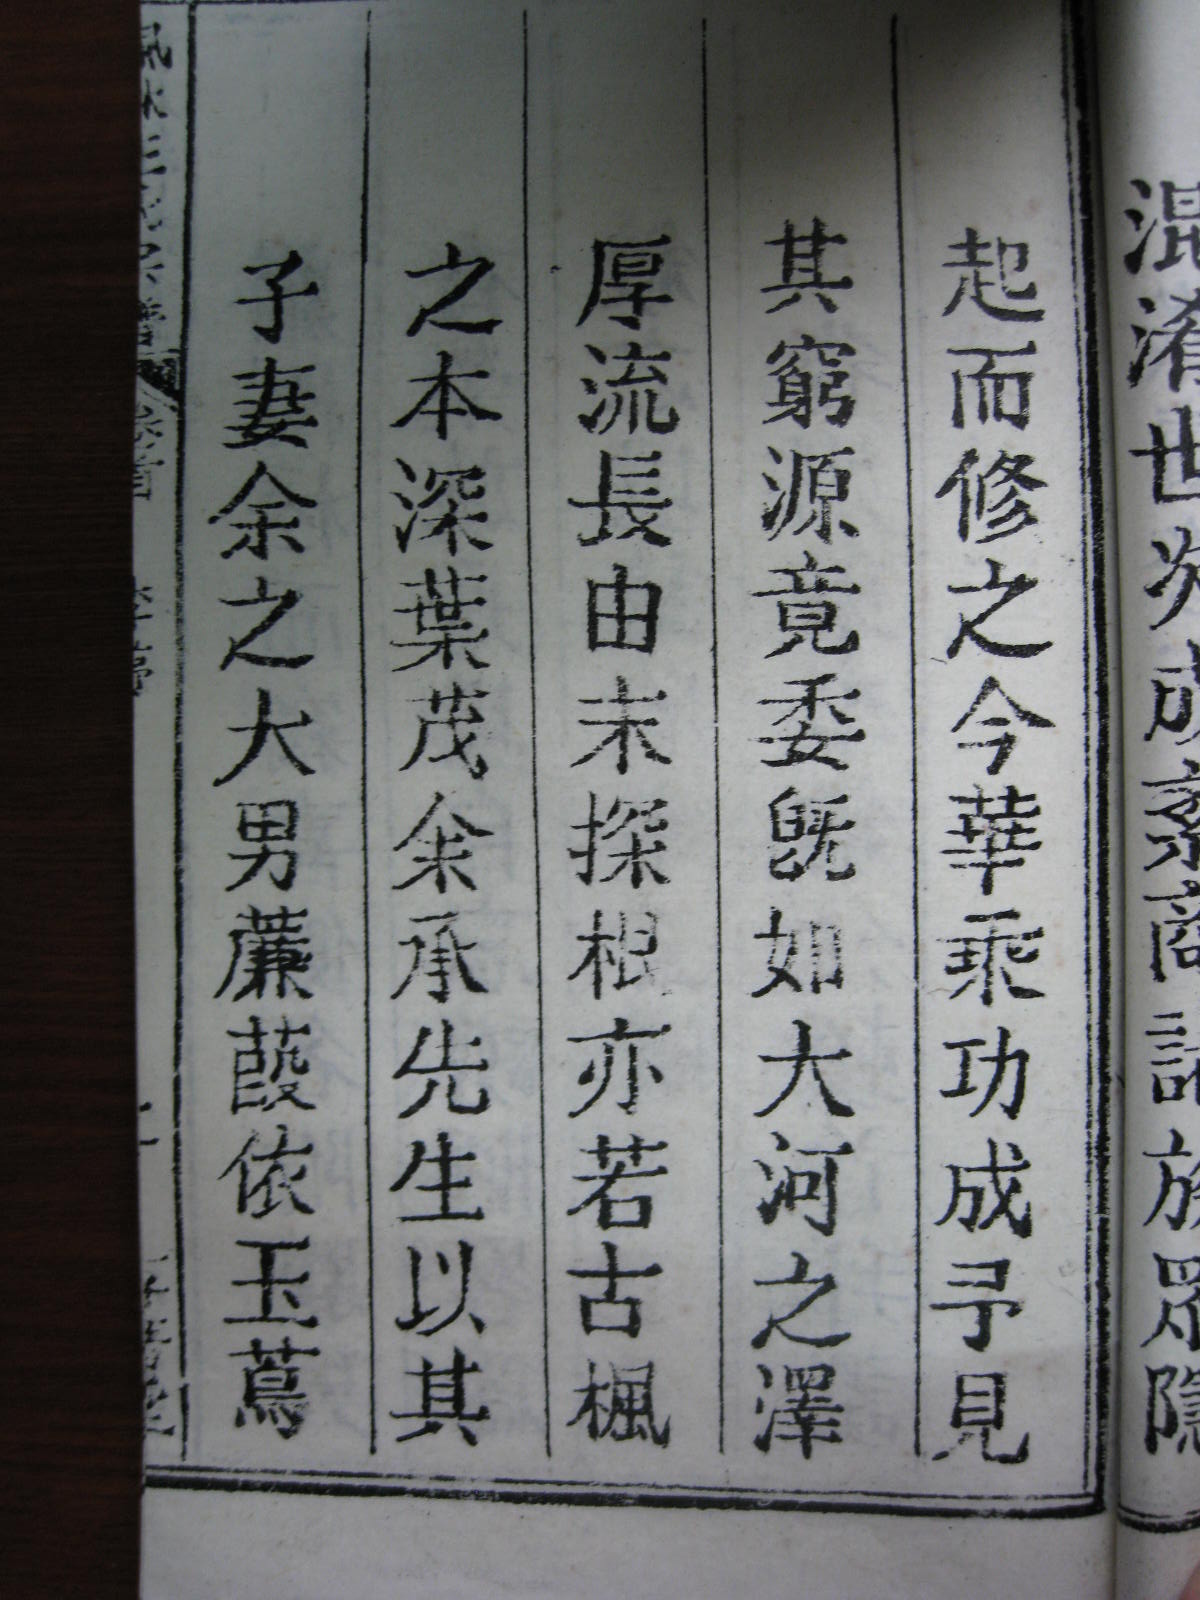 混淆世次成紊商訛族眾隱
起而修之今華乘功成予見
其窮源竟委旣如大河之澤
厚流長由末探根亦若古楓
之本深葉茂余承先生以其
子妻余之大男蒹葭依玉蔦
卷首